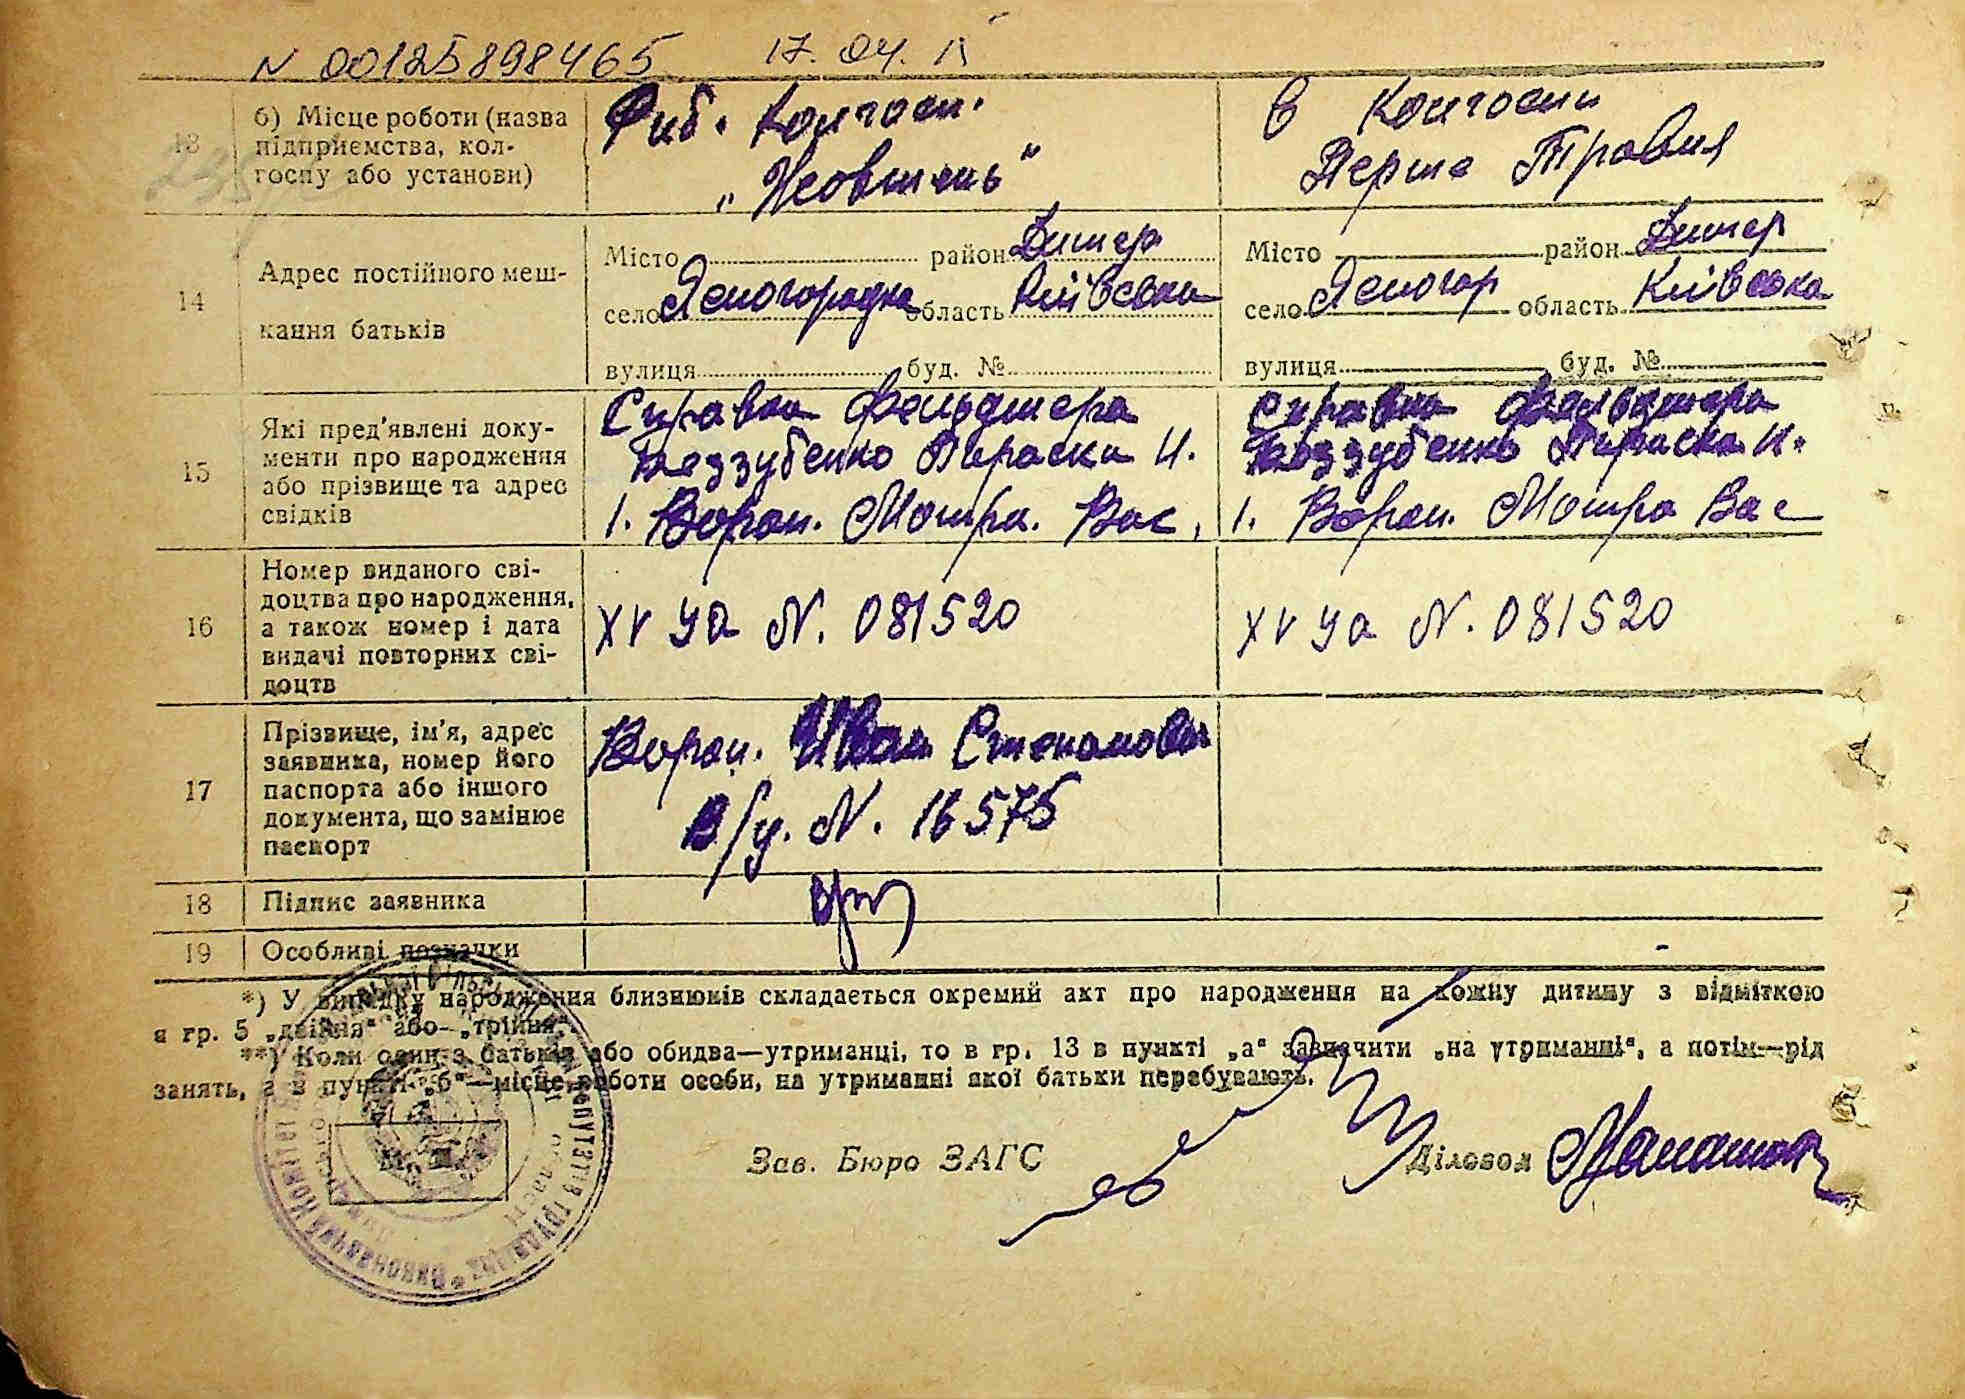 N 00125898465 17.04.15
13
б) Місце роботи (назва
підприємства, кол-
госпу або установи)
Риб. Колгосп.
„Жовтень“
в колгоспи
Перше Травня
14
Адрес постійного меш-
кання батьків
Місто район Димер
село Ясногородка область Київська
вулиця буд. №
Місто район Димер
село Ясногор область Київська
вулиця буд. №
15
Які пред'явлені доку-
менти про народження
або прізвище та адрес
свідків
Справка фельдшера
Беззубенко Параски И.
1. Вороп. Мотра. Вас.
Справка фельдшера
Беззубенко Параски И.
1. Вороп. Мотра Вас
16
Номер виданого сві-
доцтва про народження,
а також номер і дата
видачі повторних сві-
доцтв
XV УА N. 081520
XV УА N. 081520
17
Прізвище, ім'я, адрес
заявника, номер його
паспорта або іншого
документа, що замінює
паспорт
Вороп. Иван Степанович
В/у. N. 16575
18
Підпис заявника
19
Особливі позначки
*) У випадку народження близнюків складається окремий акт про народження на кожну дитину з відміткою
в гр. 5 „двійня“ або „трійня“.
**) Коли один з батьків або обидва—утриманці, то в гр. 13 в пункті „а“ зазначити „на утриманні“, а потім—рід
занять, а в пункті „б“—місце роботи особи, на утриманні якої батьки перебувають.
Зав. Бюро ЗАГС
Діловод